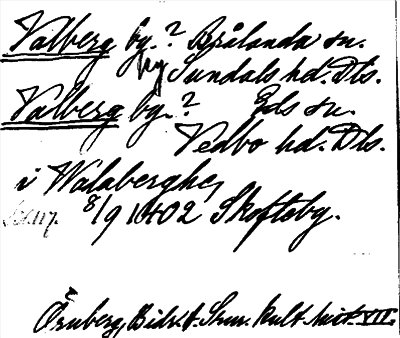 Valberg by.? Brålanda sn.
ny Sundals hd. Dls.
Valberg by.? Eds sn.
Vedbo hd. Dls.
i Walaberghe,
8/9 1402 Skofteby.
Örnberg, Bidr. t. Skm. kult. hist. VII.